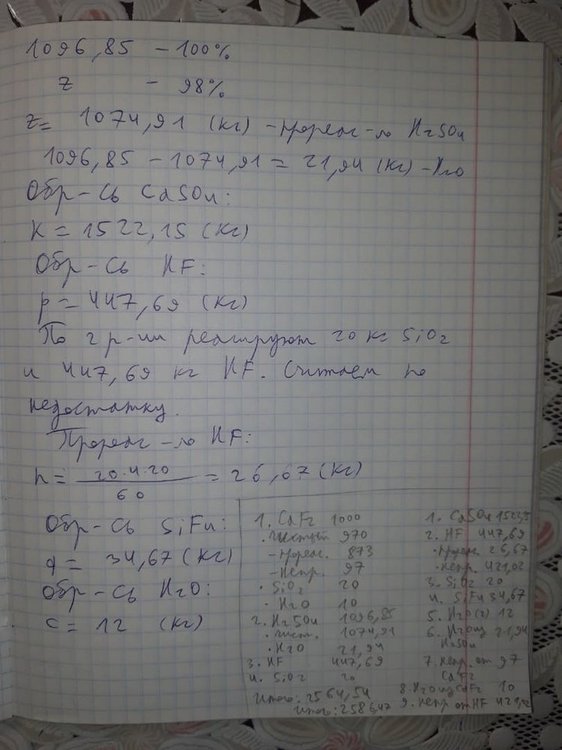 1096,85 – 100%
z – 98%
z = 1074,91 (кг) – прореаг-ло H2SO4
1096,85 – 1074,91 = 21,94 (кг) – H2O
Обр-сь CaSO4:
K = 1522,15 (кг)
Обр-сь HF:
p = 447,69 (кг)
По 2 р-ии реагируют 20 кг SiO2
и 447,69 кг HF. Считаем по
недостатку.
Прореаг-ло HF:
n = 20·4·20 / 60 = 26,67 (кг)
Обр-сь SiF4:
q = 34,67 (кг)
Обр-сь H2O:
c = 12 (кг)
1. CaF2 1000
· чистый 970
– прореаг. 873
– непр. 97
· SiO2 20
– H2O 10
2. H2SO4 1096,85
· чист. 1074,91
· H2O 21,94
3. HF 447,69
4. SiO2 20
Итого: 2564,54
1. CaSO4
2. HF 447,69
· прореаг 26,67
· непр. 421,02
3. SiO2 20
4. SiF4 34,67
5. H2O (2) 12
6. H2O из 21,94
H2SO4
7. непр. от 97
CaF2
8. H2O из CaF2 10
9. непр от HF
Итого: 2586,47